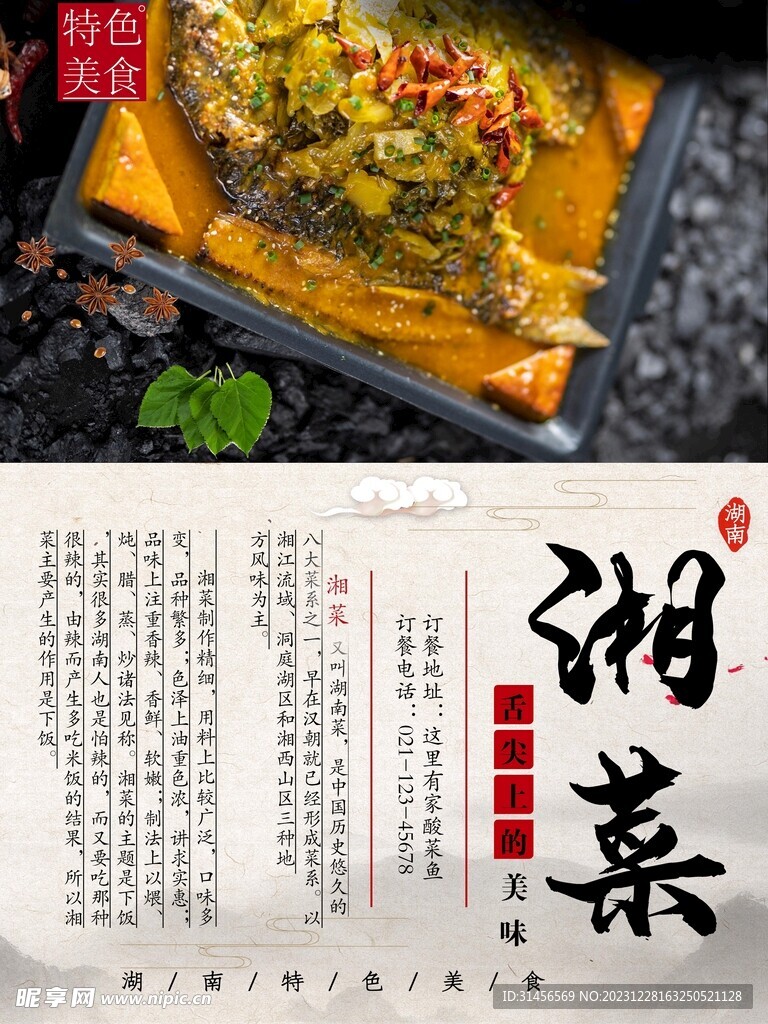 特色
美食
湖南
湘菜
舌尖上的美味
订餐地址：这里有家酸菜鱼
订餐电话：021-123-45678
湘菜 又叫湖南菜，是中国历史悠久的
八大菜系之一，早在汉朝就已经形成菜系。以
湘江流域、洞庭湖区和湘西山区三种地
方风味为主。
湘菜制作精细，用料上比较广泛，口味多
变，品种繁多；色泽上油重色浓，讲求实惠；
品味上注重香辣、香鲜、软嫩；制法上以煨、
炖、腊、蒸、炒诸法见称。湘菜的主题是下饭
，其实很多湖南人也是怕辣的，而又要吃那种
很辣的，由辣而产生多吃米饭的结果，所以湘
菜主要产生的作用是下饭。
湖/南/特/色/美/食
昵享网 www.nipic.cn
ID:31456569 NO:20231228163250521128